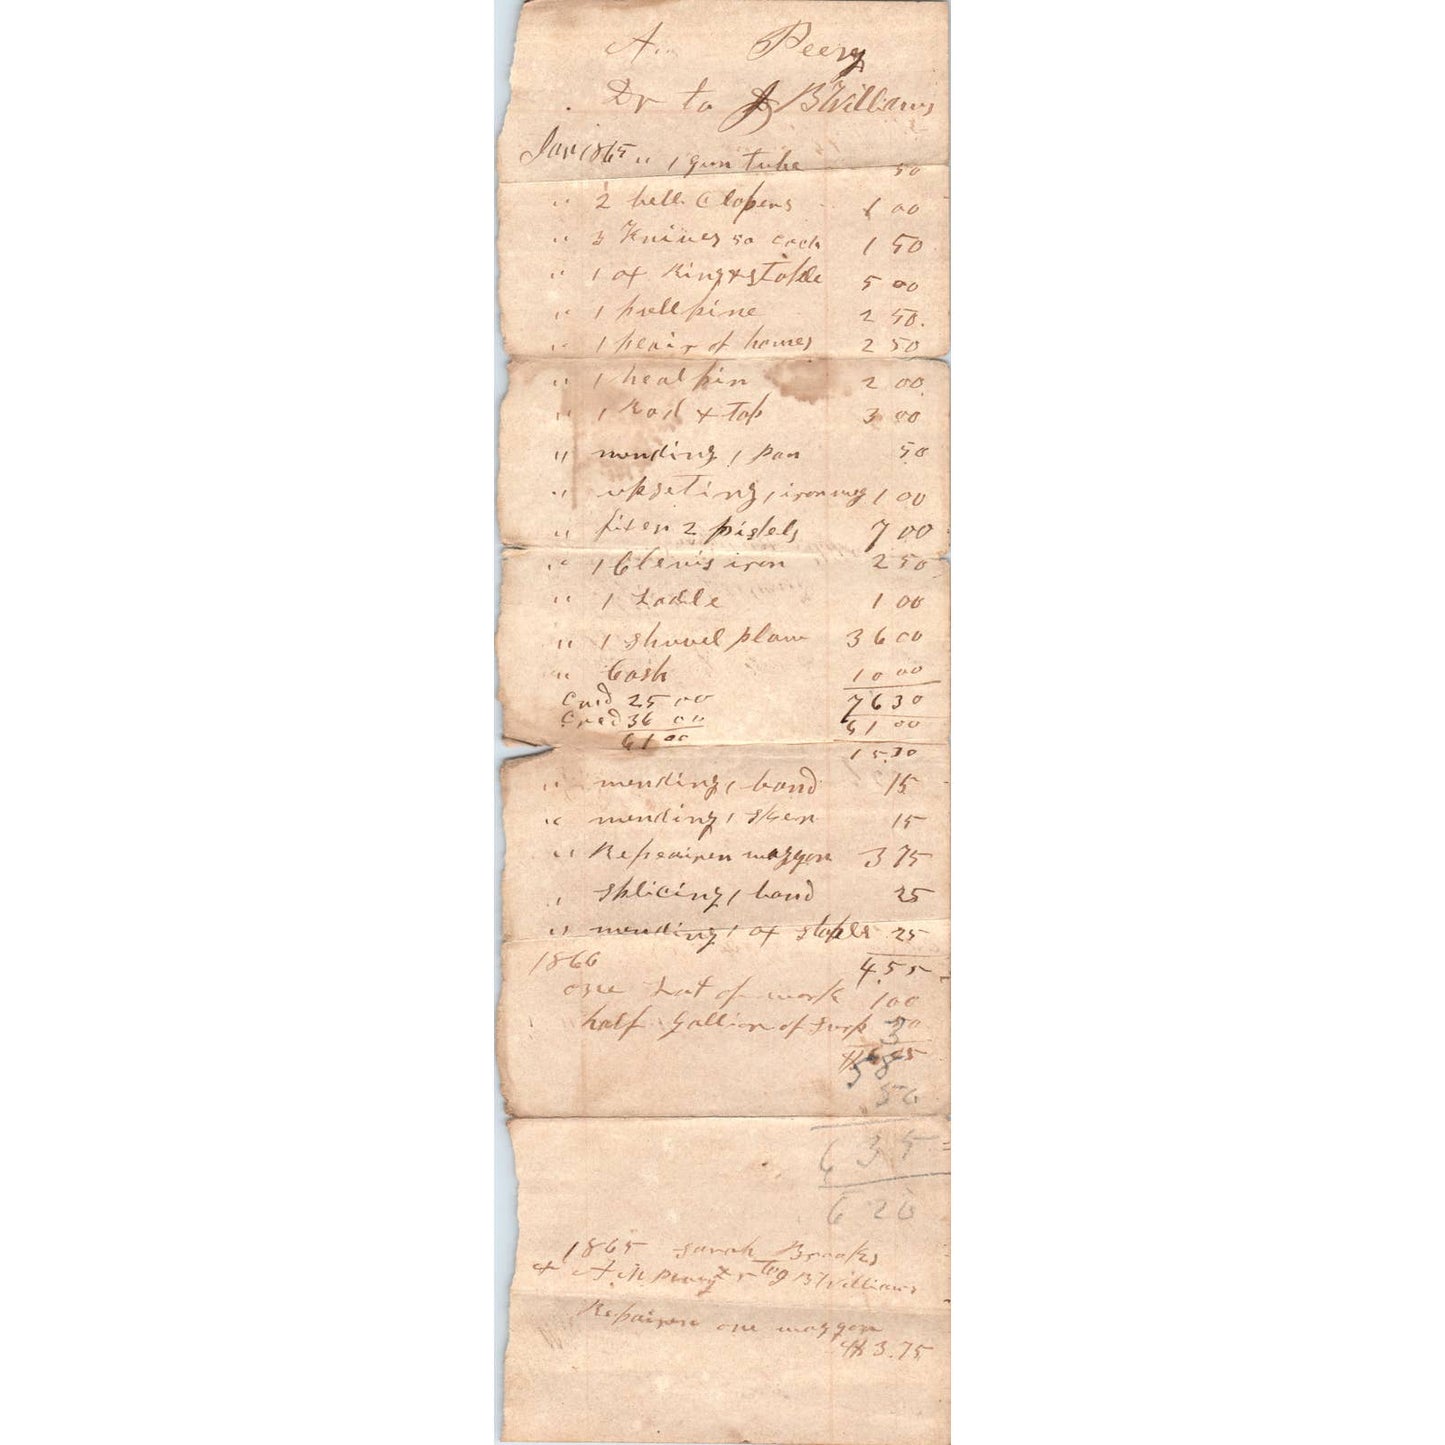 A Peery
Dr to J B Williams
Jan 1865 " 1 gun tube 50
" 2 bell Clopers 1 00
" 3 Knives 50 each 1 50
" 1 ox Ring & stople 5 00
" 1 pullpine 2 50
" 1 peair of homes 2 50
" 1 healpin 2 00
" 1 Rod & top 3 00
" mending 1 pan 50
" upseting 1 iron 1 00
" fixen 2 pistels 7 00
" 1 Clevis iron 2 50
" 1 Ladle 1 00
" 1 shovel plow 36 00
" Cash 10 00
Cred 25 00 76 30
Cred 36 00 61 00
61 00 15.30
" mending 1 band 15
" mending 1 sken 15
" Repeairen waggon 3 75
" splicing 1 band 25
" mending 1 ox stople 25
1866 4.55
one Lot of work 100
half Gallion of surp 50
58
50
635
620
1865 Sarah Brooks
& A M Peery Dr to J B Williams
Repairen one waggon
$ 3.75